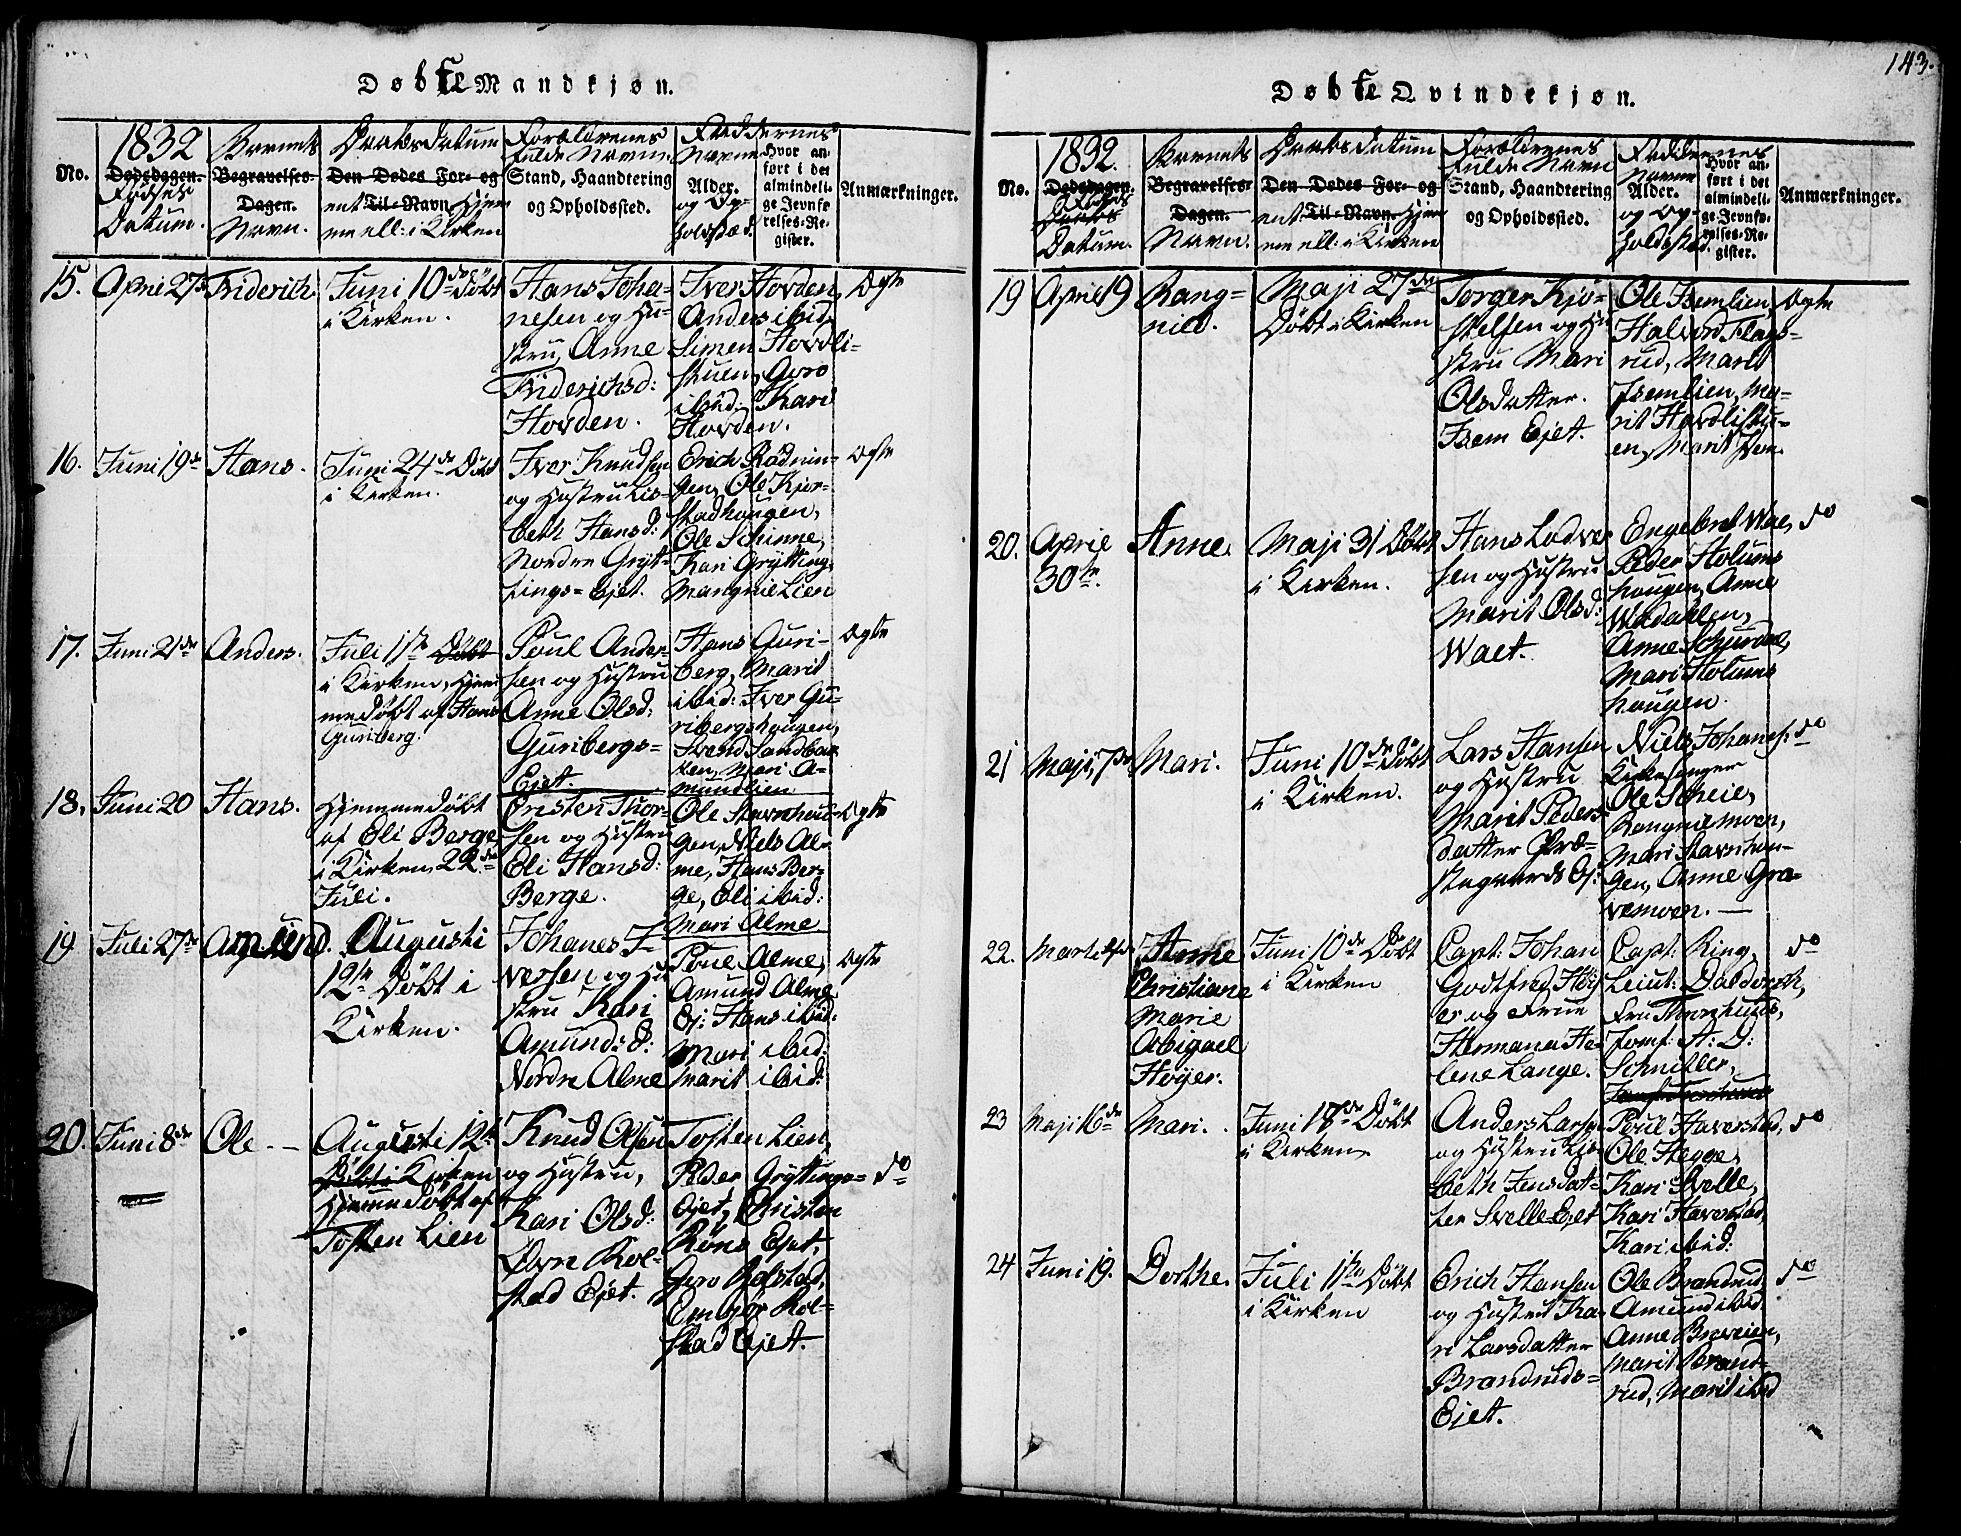 Døbte Mandkjøn.
1832
No.
Dødsdagen.
Fødsels
Datum.
Barnets
Begravelses-
Dagen.
Navn.
Daabs Datum
Den Dødes For- og
ent Til-Navn Hjem
me ell: i Kirken
Forældrenes
fulde Navn
Stand, Haandtering
og Opholdssted.
Faddernes
Navne
Alder.
og Op-
holdssted.
Hvor an-
ført i det
almindeli-
ge Jevnfø-
relses-Re-
gister.
Anmærkninger.
15. April 27de Friderich. Juni 10de Döbt
i Kirken.
Hans Joha-
nesen og Hu-
stru, Anne
Friderichsd:
Hovden.
Iver Hovden,
Anders ibid,
Simen Hovdli-
stuen, Guro
ibid: Kari
Hovden.
Ogte
16. Juni 19de Hans. Juni 24de Döbt
i Kirken.
Iver Knudsen
og Hustru Lis-
beth Hansd:
Nordre Grÿt-
tings-Ejet.
Erich Rödnin-
gen, Ole Kjor-
stadhougen,
Ole Schinne,
Kari Grÿtting,
Mangnie Lien
Ogte
17. Juni 21de Anders. Juli 1ste Döbt
i Kirken, Hjem-
medöbt af Hans
Guriberg.
Poul Ander-
sen og Hustru
Anne Olsd:
Guribergs-
Ejet.
Hans Guri-
berg, Marit
ibid: Iver Gu-
ribergshougen,
Svend Sandbak-
ken, Mari A-
mundlien
Ogte
18. Juni 20 Hans. Hjemmedöbt
af Eli Berge
i Kirken, 22de
Juli.
Cristen Thor-
sen og Hustru
Eli Hansd:
Berge.
Ole Stavnhou-
gen, Niels Al-
me, Hans Ber-
ge, Eli ibid:
Mari Alme
Ogte
19 Juli 27de Amund. Augusti
12te Döbt i
Kirken.
Johanes I-
versen og Hu-
stru Kari
Amunds: D:
Nordre Alme
Poul Alme,
Amund Alme
Ej: Hans ibid:
Mari ibid:
Marit ibid:
Ogte
20. Juni 8de Ole. Augusti 12te
Döbt i Kirken
Hjemmedöbt af
Tosten Lien
Knud Olsen
og Hustru,
Kari Olsd:
Övre Kol-
stad Ejet.
Tosten Lien,
Peder Grÿttings-
Ejet, Cristen
Röns Ejet,
Guro Kolstad,
Embjör Kol-
stad Ejet.
do
143.
Døbte Qvindekjøn.
1832.
No.
Dødsdagen.
Fødsels
Daabs
Datum.
Barnets
Begravelses-
Dagen.
Navn.
Daabs Datum
Den Dødes For- og
ent Til-Navn. Hjem
me ell: i Kirken
Forældrenes
fulde Navn
Stand, Haandtering
og Opholdssted.
Faddernes
Navne
Alder.
og Op-
holdssted.
Hvor an-
ført i det
almindeli-
ge Jevnfø-
relses-Re-
gister.
Anmærkninger.
19 April 19 Rang-
nild.
Maji 27de
Döbt i Kirken
Torger Kjö-
stelsen og Hu
stru Mari
Olsdatter.
Isem Ejet.
Ole Isemlien,
Halvord Flags-
rud, Marit
Isemlien, Ma-
rit Hovdlistu-
en, Marit
Ogte
20. April
30te.
Anne. Maji 31 Döbt
i Kirken.
Hans Lodver
sen og Hustru
Marit Olsd:
Waet.
Engebret Wae,
Peder Holums
hougen, Anne
Wadahlen,
Anne Schurdal,
Mari Holums
hougen.
do
21 Maji 7de Mari. Juni 10de Döbt
i Kirken.
Lars Hansen
og Hustru
Marit Peders-
datter Præ-
stegaards Ej:
Niels Johanes:
Kirkesanger
Ole Scheie,
Rangnie Moen,
Mari Stavnhou-
gen, Anne Gra-
vemoen.
do
22. Martii Anne
Christiane
Marie
Abigael
Höÿer.
Juni 10de Döbt
i Kirken
Capt: Johan
Godtfred Höÿ
er og Frue
Hermana He-
lene Lange.
Capt: Ring,
Leiut: Daldorph,
Fru
Jomf: A: D:
Schnitler,
do
23 Maji 16de Mari. Juni 17de Döbt
i Kirken
Anders Larsen
og Hustru Lis-
beth Jensdat-
ter Svelle Ejet
Poul Haverstad,
Ole Hegge,
Kari Svelle,
Kari Haverstad,
Kari ibid:
do
24 Juni 19. Dorthe. Juli 1ste Döbt
i Kirken
Erich Hansen
og Hustru Ka-
ri Larsdatter
Brandruds-
Ejet.
Ole Brandrud,
Amund ibid
Anne Breveien,
Marit Brand-
rud, Marit ibid
do